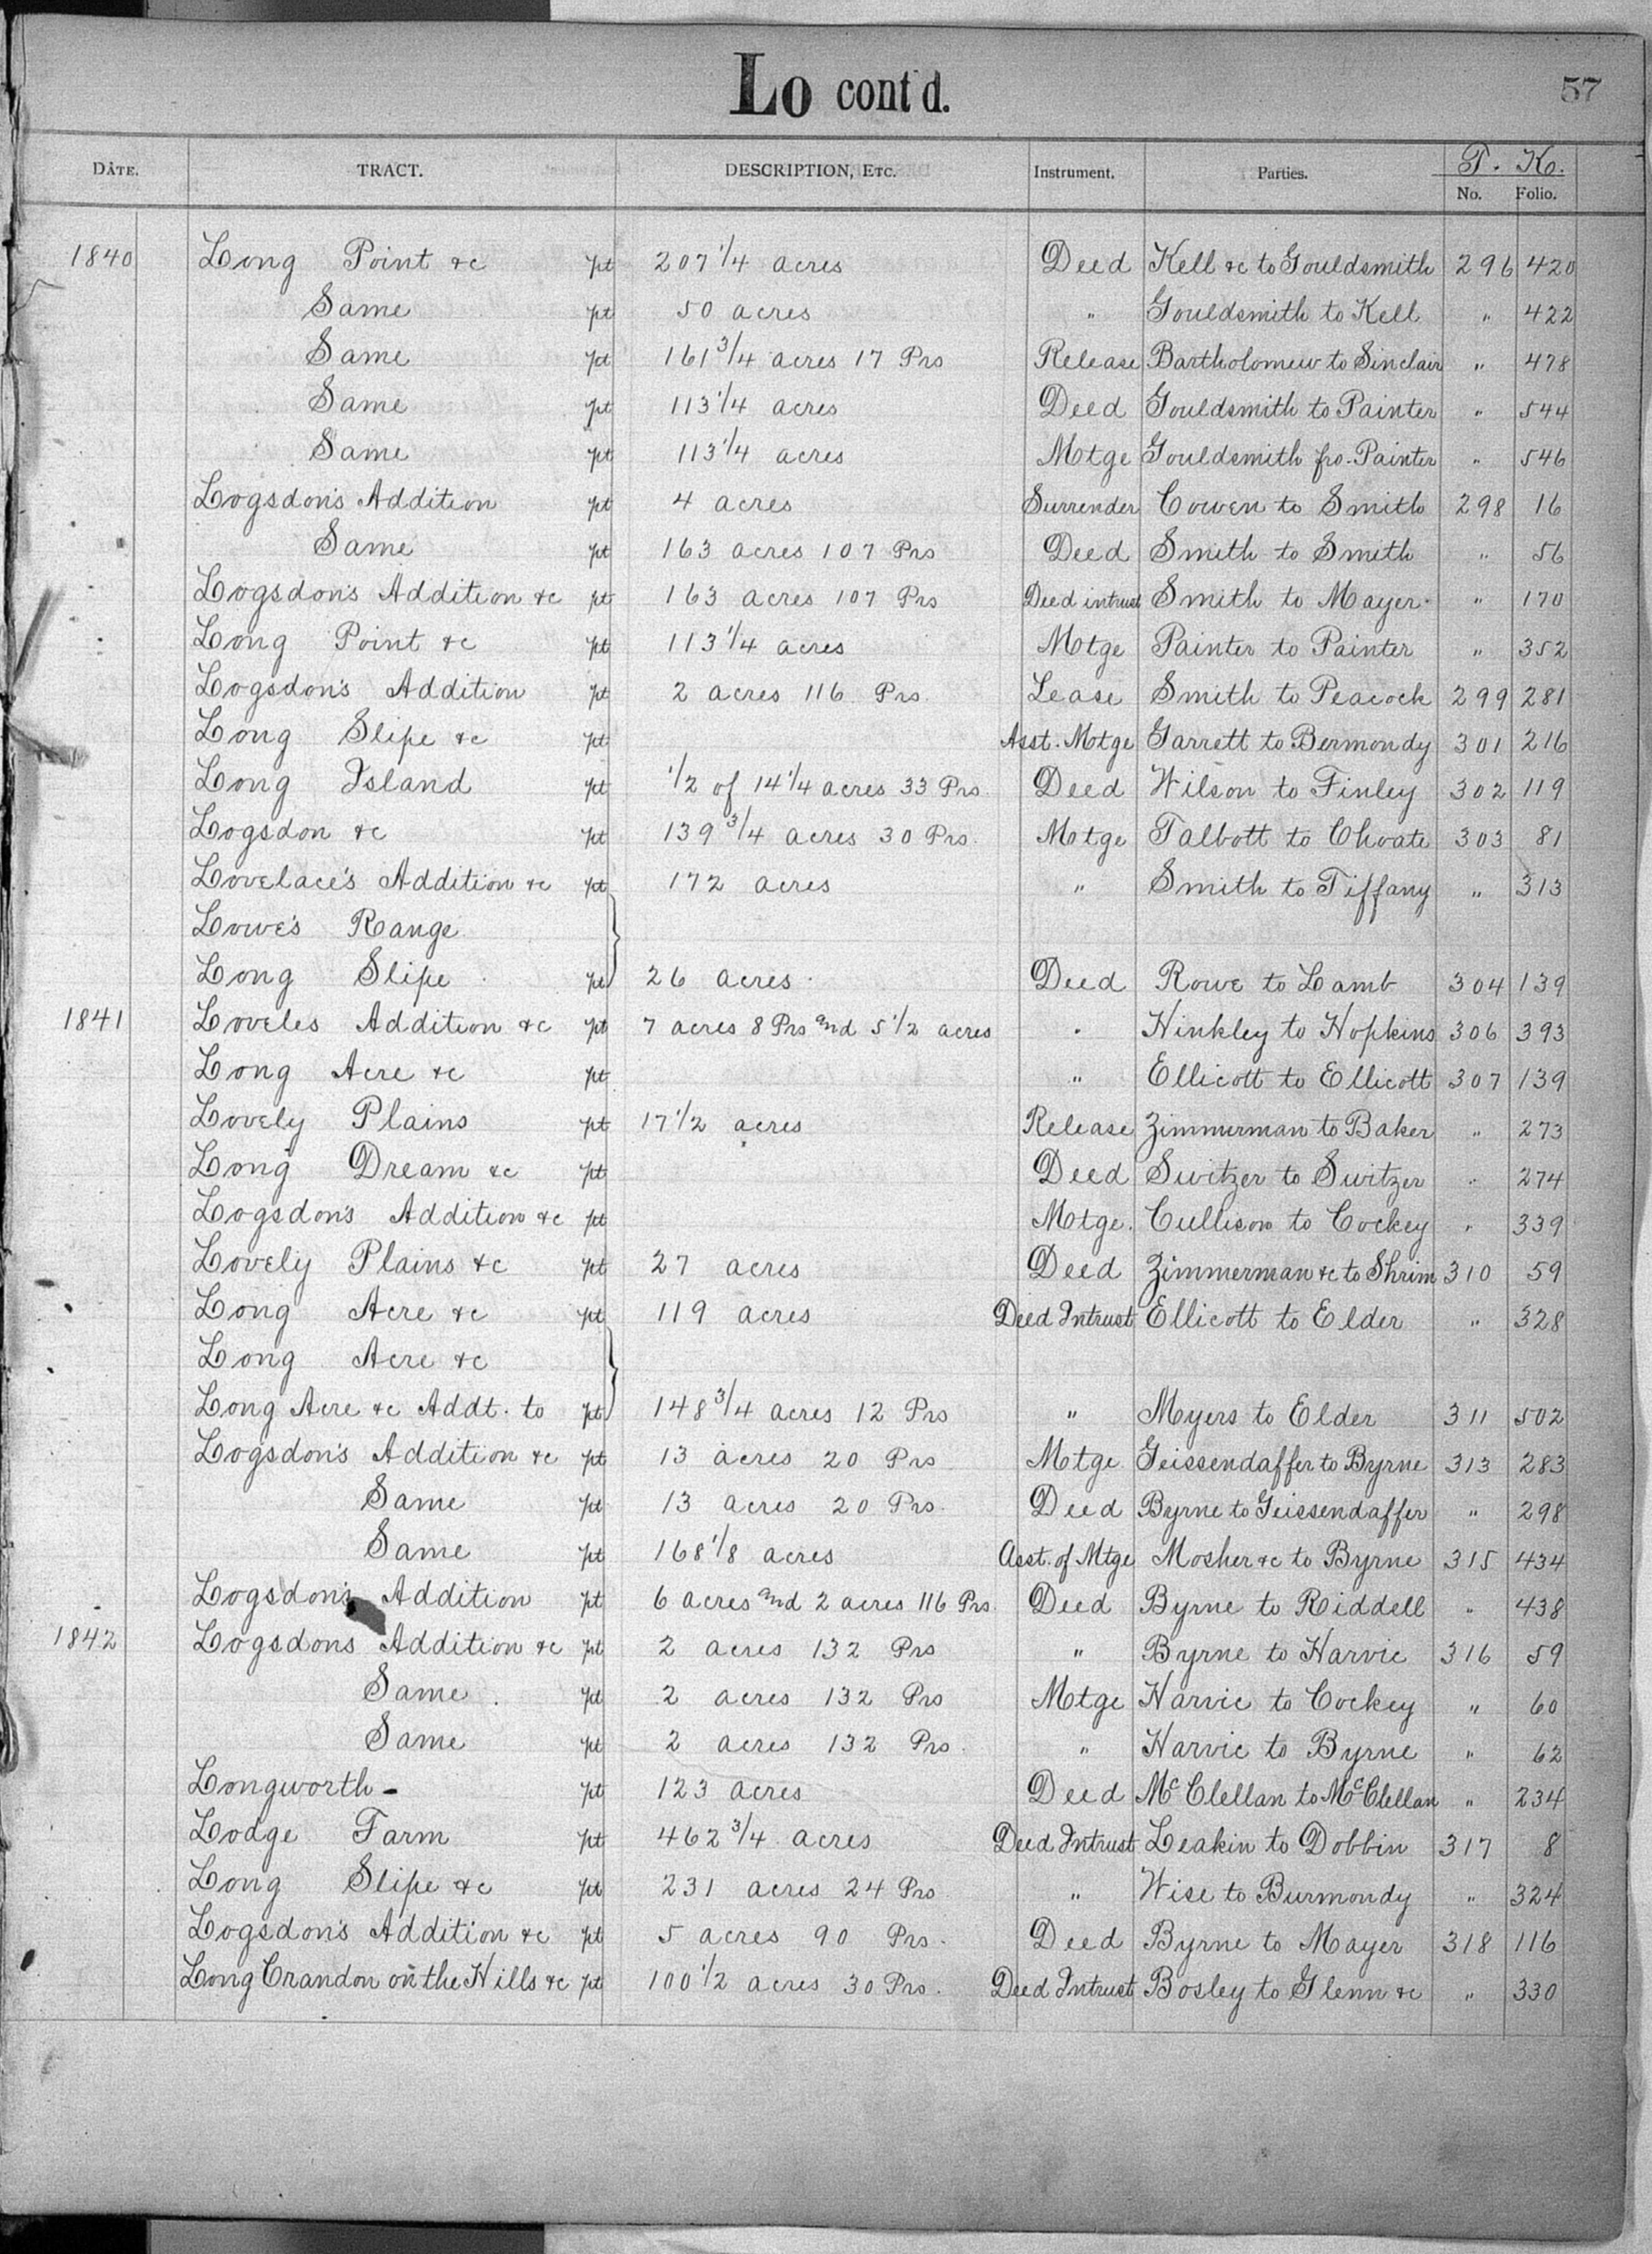 Lo cont'd.
57
DATE. TRACT. DESCRIPTION, ETC. Instrument. Parties. T. K. No. Folio.
1840 Long Point &c pt 207 1/4 acres Deed Kell &c to Gouldsmith 296 420
Same pt 50 acres " Gouldsmith to Kell " 422
Same pt 161 3/4 acres 17 Prs Release Bartholomew to Sinclair " 478
Same pt 113 1/4 acres Deed Gouldsmith to Painter " 544
Same pt 113 1/4 acres Motge Gouldsmith fro. Painter " 546
Logsdon's Addition pt 4 acres Surrender Cowen to Smith 298 16
Same pt 163 acres 107 Prs Deed Smith to Smith " 56
Logsdon's Addition &c pt 163 acres 107 Prs Deed intrust Smith to Mayer " 170
Long Point &c pt 113 1/4 acres Motge Painter to Painter " 352
Logsdon's Addition pt 2 acres 116 Prs. Lease Smith to Peacock 299 281
Long Slipe &c pt Asst. Motge Garrett to Bermondy 301 216
Long Island pt 1/2 of 14 1/4 acres 33 Prs. Deed Wilson to Finley 302 119
Logsdon &c pt 139 3/4 acres 30 Prs. Motge Talbott to Choate 303 81
Lovelace's Addition &c pt 172 acres " Smith to Tiffany " 313
Lowe's Range
Long Slipe pt 26 acres Deed Rowe to Lamb 304 139
1841 Loveles Addition &c pt 7 acres 8 Prs and 5 1/2 acres " Hinkley to Hopkins 306 393
Long Acre &c pt " Ellicott to Ellicott 307 139
Lovely Plains pt 17 1/2 acres Release Zimmerman to Baker " 273
Long Dream &c pt Deed Switzer to Switzer " 274
Logsdon's Addition &c pt Motge. Cullison to Cockey " 339
Lovely Plains &c pt 27 acres Deed Zimmerman &c to Shrim 310 59
Long Acre &c pt 119 acres Deed Intrust Ellicott to Elder " 328
Long Acre &c
Long Acre &c Addt. to pt 148 3/4 acres 12 Prs " Myers to Elder 311 502
Logsdon's Addition &c pt 13 acres 20 Prs Motge Geissendaffer to Byrne 313 283
Same pt 13 acres 20 Prs. Deed Byrne to Geissendaffer " 298
Same pt 168 1/8 acres Asst. of Mtge Mosher &c to Byrne 315 434
Logsdon's Addition pt 6 acres and 2 acres 116 Prs. Deed Byrne to Riddell " 438
1842 Logsdons Addition &c pt 2 acres 132 Prs " Byrne to Harvie 316 59
Same pt 2 acres 132 Prs Motge Harvie to Cockey " 60
Same pt 2 acres 132 Prs. " Harvie to Byrne " 62
Longworth pt 123 acres Deed McClellan to McClellan " 234
Lodge Farm pt 462 3/4 acres Deed Intrust Leakin to Dobbin 317 8
Long Slipe &c pt 231 acres 24 Prs " Wise to Burmondy " 324
Logsdon's Addition &c pt 5 acres 90 Prs. Deed Byrne to Mayer 318 116
Long Crandon on the Hills &c pt 100 1/2 acres 30 Prs. Deed Intrust Bosley to Glenn &c " 330